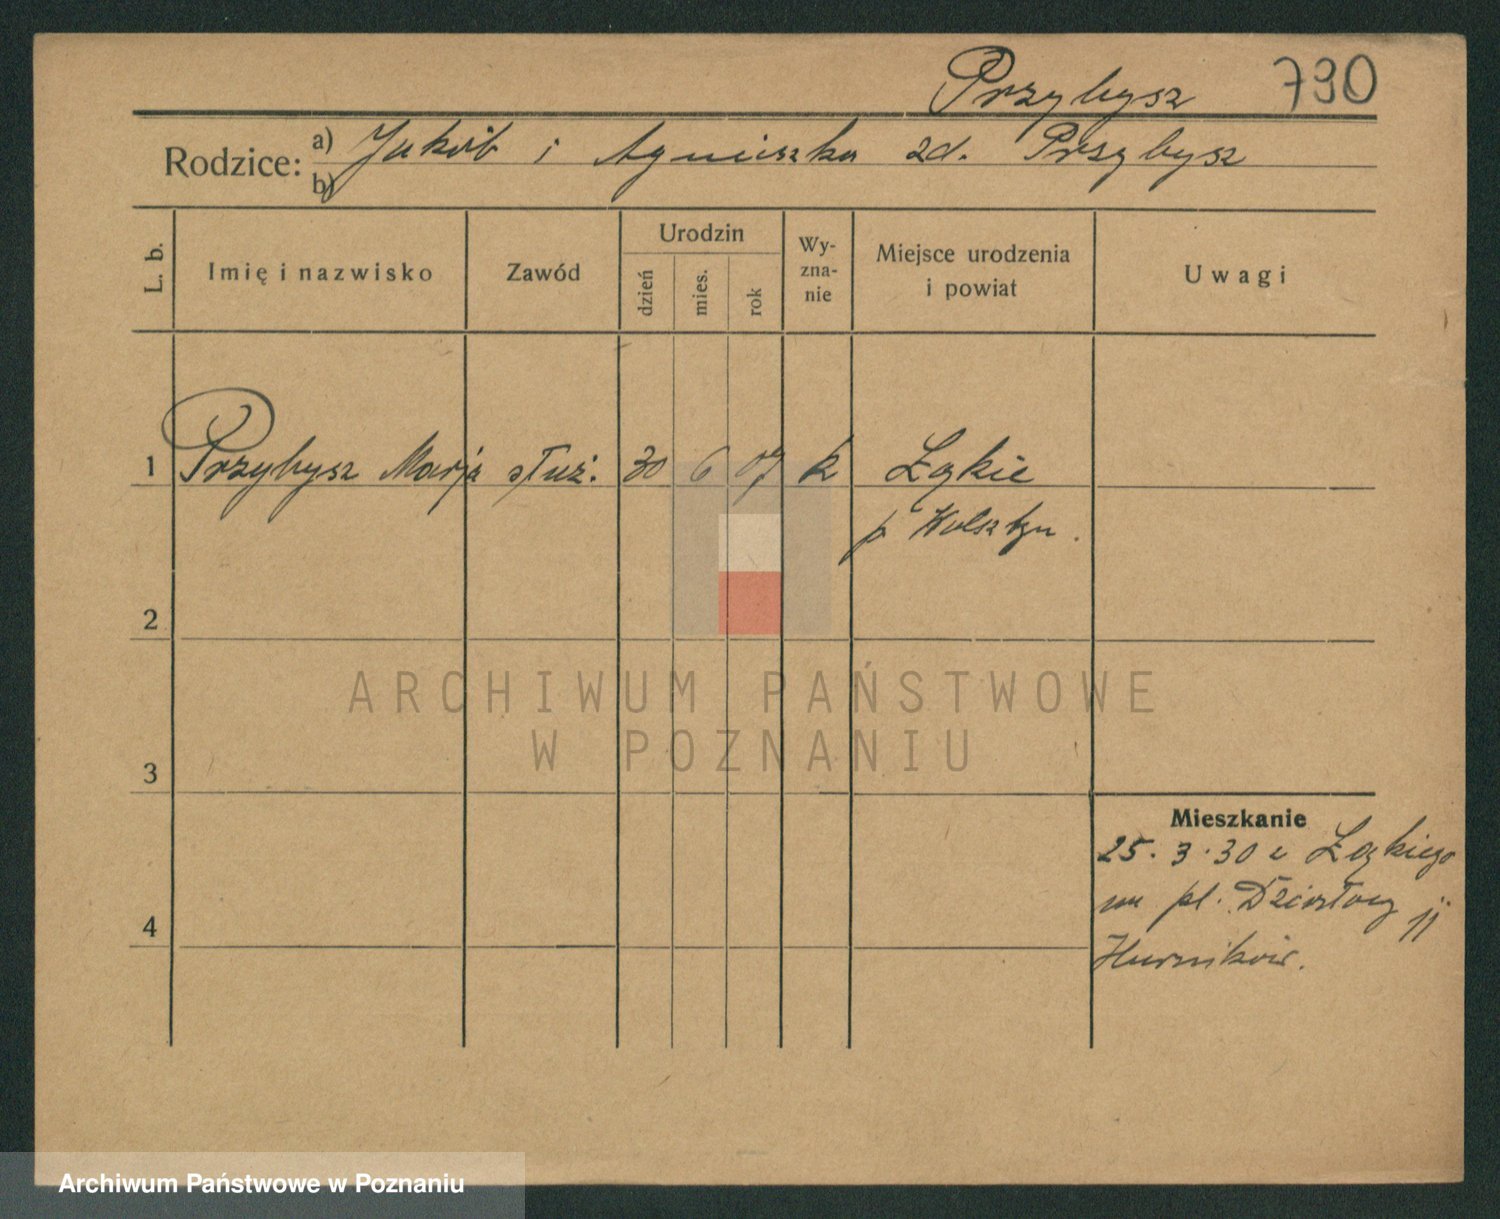 Przybysz 790
Rodzice: a) Jakób i Agnieszka zd. Przybysz
b)
L. b.
Imię i nazwisko
Zawód
Urodzin
dzień
mies.
rok
Wy-
zna-
nie
Miejsce urodzenia
i powiat
Uwagi
1 Przybysz Marja służ. 30 6 07 k Łąkie
p Wolsztyn.
2
3
4
ARCHIWUM PAŃSTWOWE
W POZNANIU
Mieszkanie
25. 3. 30 z Łąkiego
na pl. Działowy 11
Archiwum Państwowe w Poznaniu